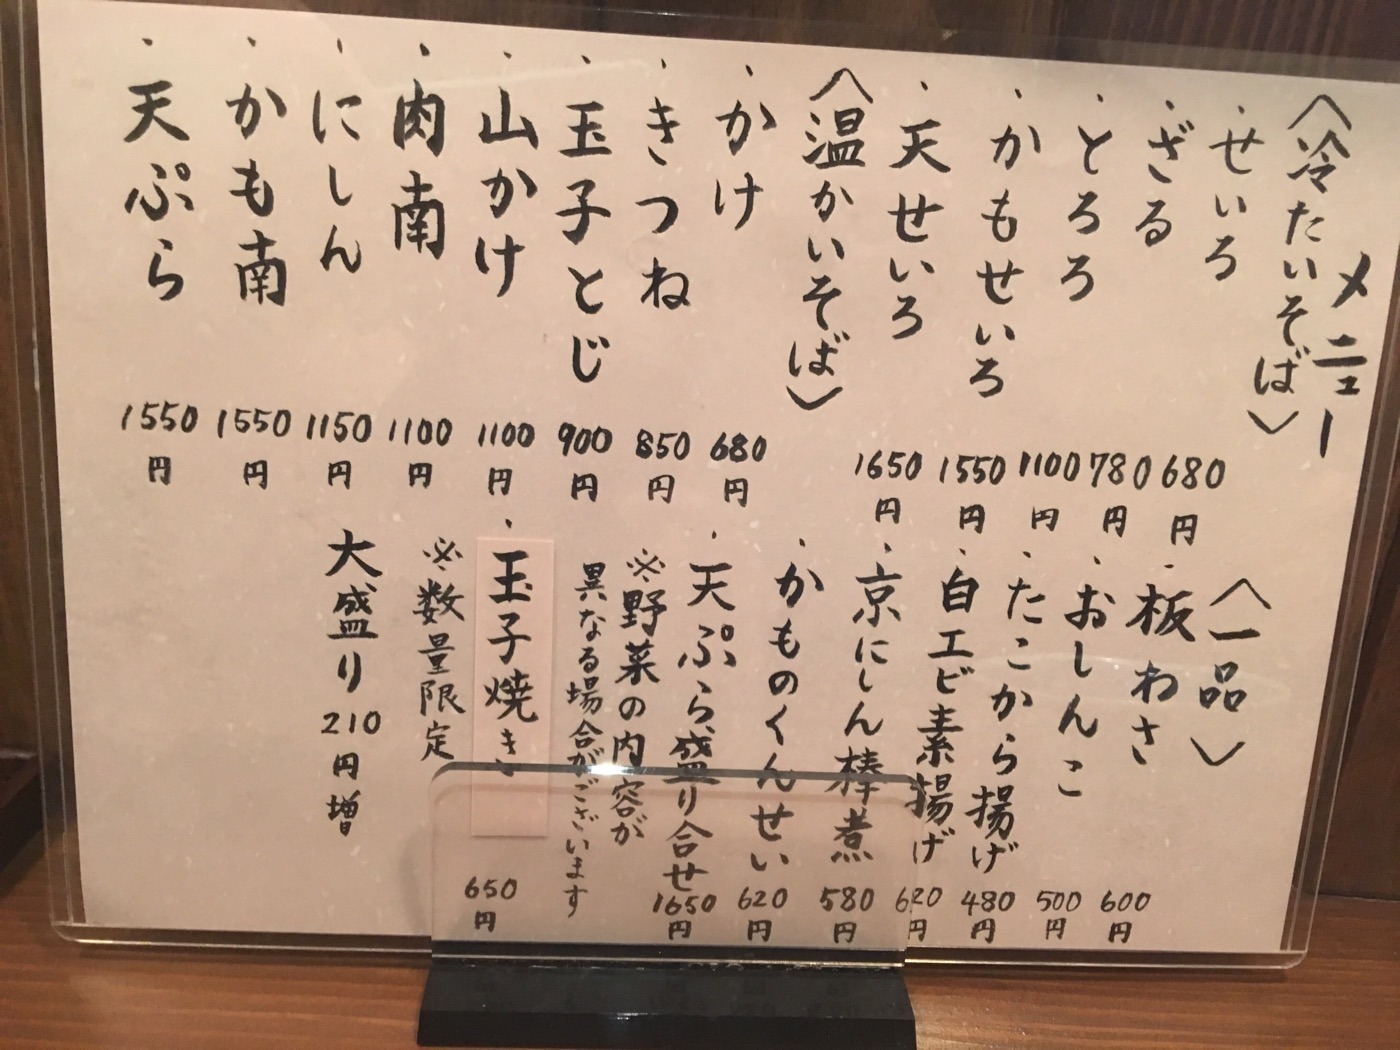 メニュー
〈冷たいそば〉
・せいろ 680円
・ざる 780円
・とろろ 1100円
・かもせいろ 1550円
・天せいろ 1650円
〈温かいそば〉
・かけ 680円
・きつね 850円
・玉子とじ 900円
・山かけ 1100円
・肉南 1100円
・にしん 1150円
・かも南 1550円
・天ぷら 1550円
〈一品〉
・板わさ 600円
・おしんこ 500円
・たこから揚げ 480円
・白エビ素揚げ 620円
・京にしん棒煮 580円
・かものくんせい 620円
・天ぷら盛り合せ 1650円
※野菜の内容が
異なる場合がございます
・玉子焼き 650円
※数量限定
大盛り210円増